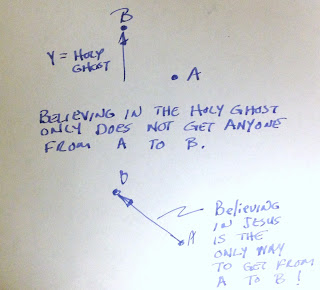 B
Y = HOLY
GHOST
A
BELIEVING IN THE HOLY GHOST
ONLY DOES NOT GET ANYONE
FROM A TO B.
B
A
Believing
IN JESUS
IS THE
ONLY WAY
TO GET FROM
A TO B!